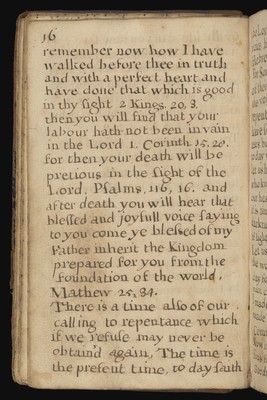 16
remember now how I have
walked before thee in truth
and with a perfect heart and
have done that which is good
in thy sight 2 Kings. 20, 3,
then you will find that your
labour hath not been in vain
in the Lord 1. Corinth. 15, 20.
for then your death will be
pretious in the sight of the
Lord. Psalms, 116, 16. and
after death you will hear that
blessed and joyfull voice saying
to you come ye blessed of my
Father inherit the Kingdom
prepared for you from the
foundation of the world,
Mathew 25, 34.
There is a time also of our
calling to repentance which
if we refuse may never be
obtain'd again, The time is
the present time, to day saith